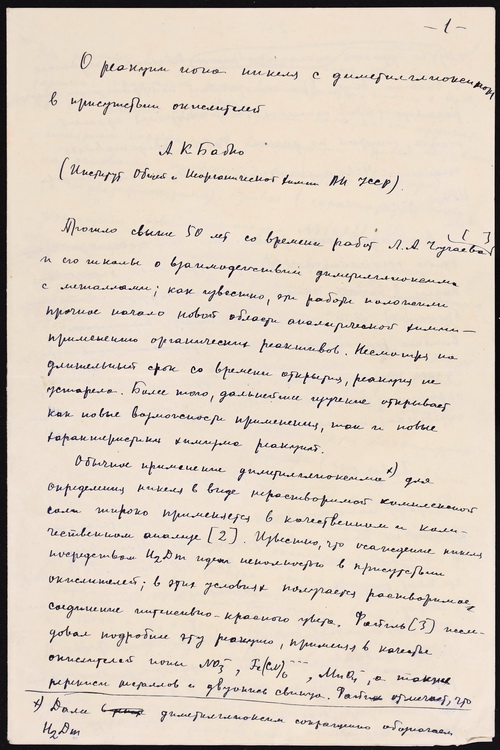 – 1 –
О реакции иона никеля с диметилглиоксимом
в присутствии окислителей
А К Бабко
(Институт Общей и Неорганической химии АН УССР).
Прошло свыше 50 лет со времени работ Л. А Чугаева [1]
и его школы о взаимодействии диметилглиоксима
с металлами; как известно, эти работы положили
прочное начало новой области аналитической химии –
применению органических реактивов. Несмотря на
длительный срок со времени открытия, реакция не
устарела. Более того, дальнейшее изучение открывает
как новые возможности применения, так и новые
характеристики химизма реакций.
Обычное применение диметилглиоксима x) для
определения никеля в виде нерастворимой комплексной
соли широко применяется в качественном и коли-
чественном анализе [2]. Известно, что осаждение никеля
посредством H₂Dm идет неполностью в присутствии
окислителей; в этих условиях получается растворимое
соединение интенсивно-красного цвета. Файгль [3] иссле-
довал подробнее эту реакцию, применяя в качестве
окислителей ионы NO₃⁻, Fe(CN)₆⁻⁻⁻, MnO₄⁻, а также
перекиси металлов и двуокись свинца. отмечает, что
x) Далее диметилглиоксим сокращенно обозначаем
H₂Dm